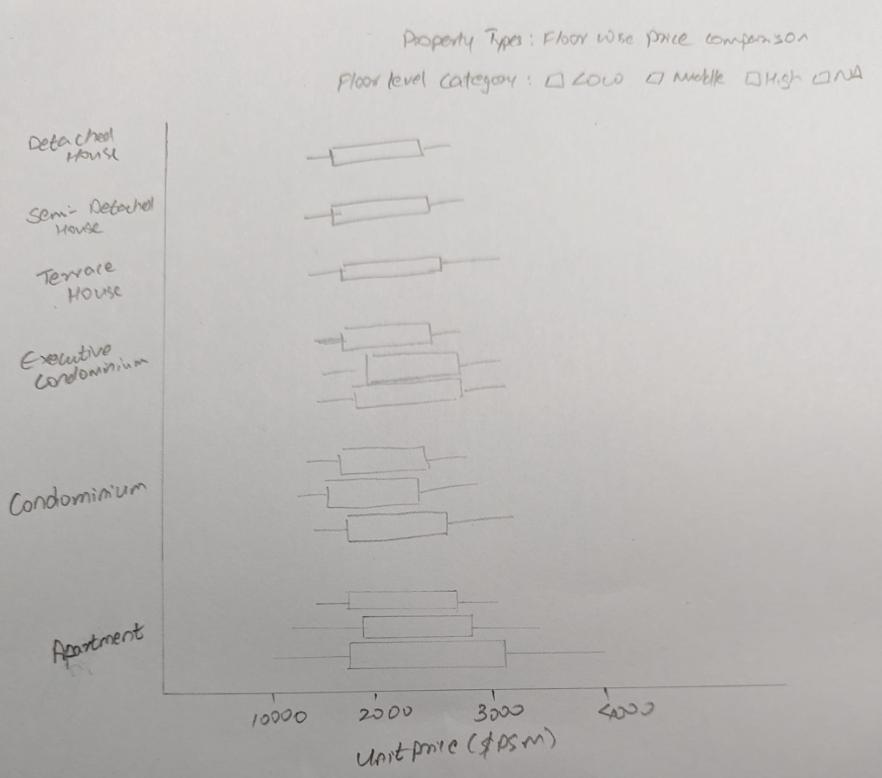 Property Types: Floor wise price comparison
Floor level category: Low Middle High NA
Detached
House
Semi-Detached
House
Terrace
House
Executive
Condominium
Condominium
Apartment
10000 2000 3000 4000
Unit price ($psm)